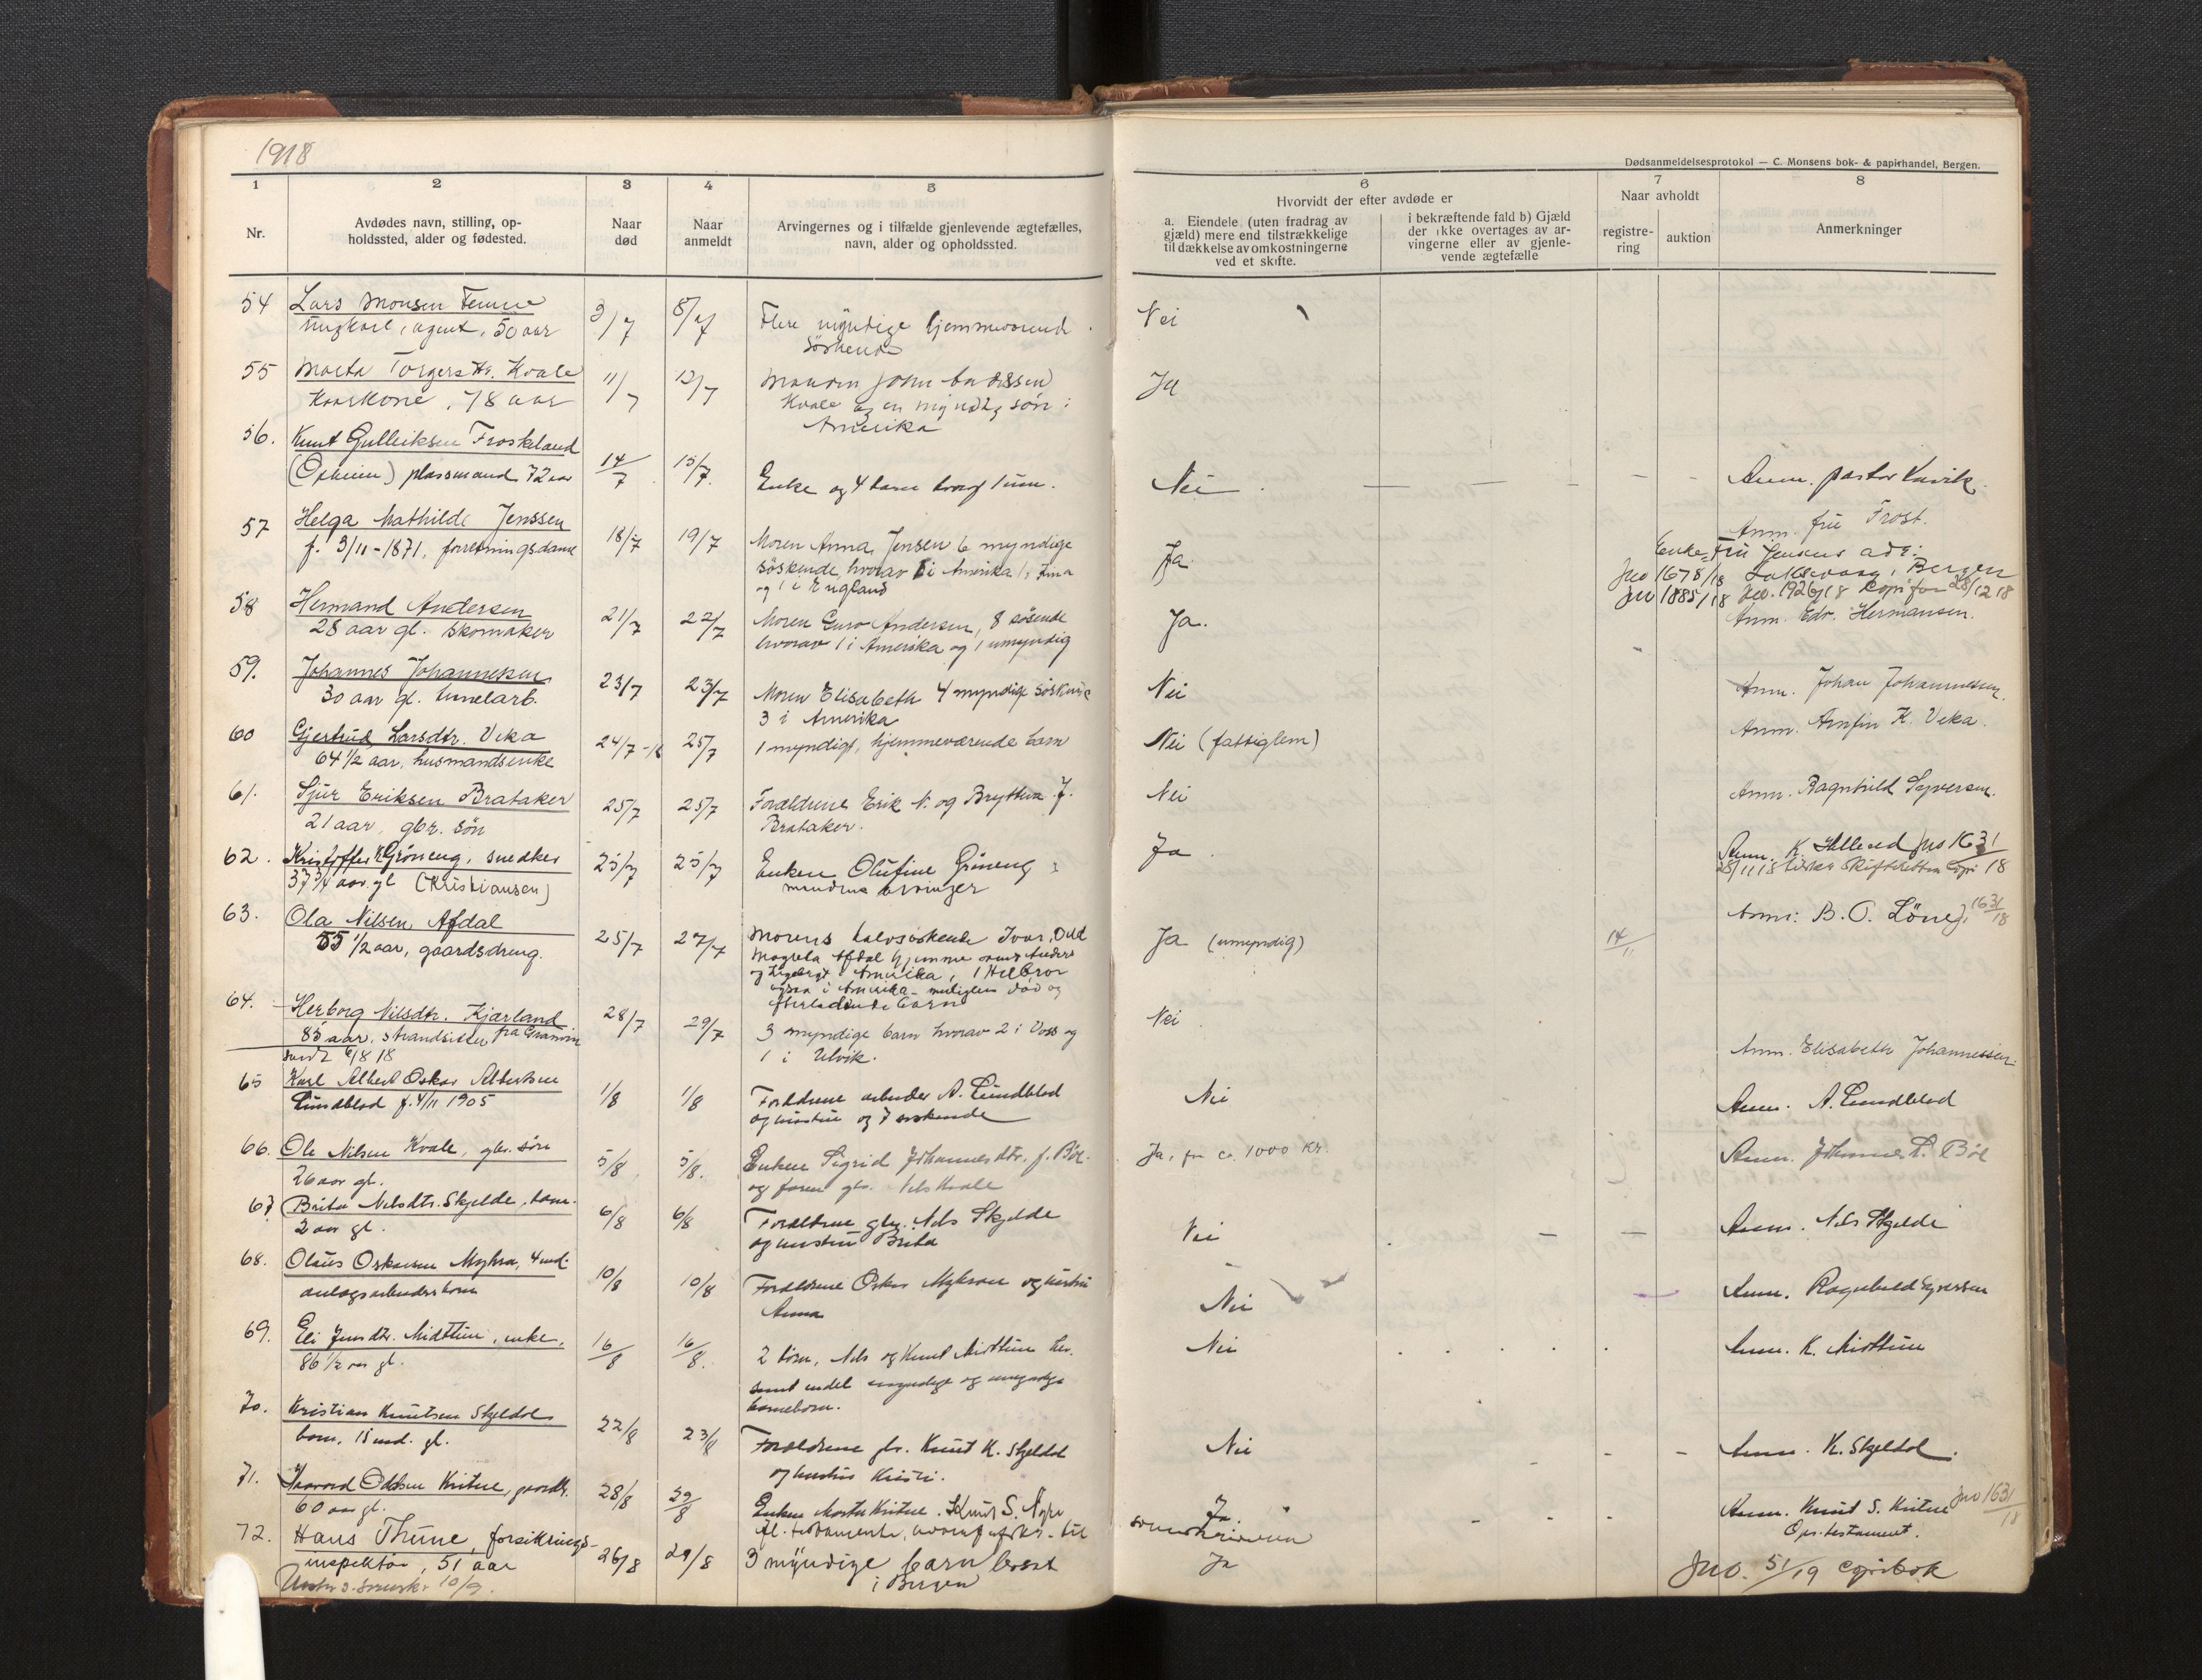 1918
Dødsanmeldelsesprotokol — C. Monsens bok- & papirhandel, Bergen.
1 2 3 4 5 6 7 8
Nr.
Avdødes navn, stilling, op-
holdssted, alder og fødested.
Naar
død
Naar
anmeldt
Arvingernes og i tilfælde gjenlevende ægtefælles,
navn, alder og opholdssted.
Hvorvidt der efter avdøde er
a. Eiendele (uten fradrag av
gjæld) mere end tilstrækkelige
til dækkelse av omkostningerne
ved et skifte.
i bekræftende fald b) Gjæld
der ikke overtages av ar-
vingerne eller av gjenle-
vende ægtefælle
Naar avholdt
registre-
ring
auktion
Anmerkninger
54 Lars Monsen
ungkarl, agent, 50 aar
3/7 8/7
Flere myndige hjemmeværende
Søskende
Nei
55 Marta Torgersdtr. Kvale
Kaarkone, 78 aar
11/7 12/7
Manden John
Kvale og en myndig søn i
Amerika
Ja
56. Knut Gulleiksen Froskeland
plassmand 72 aar
14/7 15/7
Enke og 4 barn hvoraf 1 um.
Nei
Anm. pastor
57 Helga Mathilde Jenssen
f. 3/11-1871, forretningsdame
18/7 19/7
Moren Anna Jensen 6 myndige
søskende, hvorav i Amerika
og 1 i England
Ja
Anm. frü Frost.
Enke-Frü Jensens adr:
Laksevaag, Bergen
Jno 1678/18
Jno 1885/18 Jno. 1926/18 Kopi fra 28/12 18
58 Hermand Andersen
28 aar gl. skomaker
21/7 22/7
Moren Guro Andersen, 8 søsende
hvorav 1 i Amerika og 1 umyndig
Ja.
Anm. Edv. Hermansen.
59. Johannes Johannessen
30 aar gl. tunelarb.
23/7 23/7
Moren Elisabeth 4 myndige søskende
3 i Amerika
Nei
Anm. Johan Johannessen
60 Gjertrud Larsdtr. Veka
64 1/2 aar, husmandsenke
24/7-18 25/7
1 myndigt, hjemmeværende barn
Nei (fattiglem)
Anm. Arnfin K. Veka.
61. Sjur Eriksen Brataker
21 aar, gbr. søn
25/7 25/7
Forældrene Erik N. og Brytteva J.
Brataker.
Nei
Anm. Ragnhild Syversen.
62. Kristoffer Grøneng, snedker
37 3/4 aar gl (Kristiansen)
25/7 25/7
Enken Olufine Grøneng
mandens arvinger
Ja
Anm. K. Jno 1631
28/11 18 Skifteretten Kopi 18
63. Ola Nilsen Afdal
55 1/2 aar, gaardsdreng.
25/7 27/7
Morens halvsøskende Ivar, Odd
Magrela Afdal hjemme samt Anders
og Ingebrigt i Amerika, 1 Helbror
ogsaa i Amerika - muligens død og
efterladende barn
Ja (umyndig)
14/11
Anm: B. O. Löne, 1631/18
64. Herborg Nilsdtr. Kjærland
85 aar, strandsitter fra Granvin
sendt 6/8 18
28/7 29/7
3 myndige barn hvorav 2 i Voss og
1 i Ulvik.
Nei
Anm. Elisabeth Johannessen.
65 Karl Albert Oskar Albertsen
Lundblad f. 4/11 1905
1/8 1/8
Forældrene arbeider A. Lundblad
og hustru og 7 søskende
Nei
Anm. A. Lundblad
66. Ole Nilsen Kvale, gbr. søn
26 aar gl.
5/8 5/8.
Enken Sigrid Johannesdtr. f. Böe
og faren gbr. Nels Kvale
Ja, for ca. 1000 kr.
Anm. Johannes L. Böe
67 Brita Nelsdtr. Skjelde, barn.
2 aar gl.
6/8 6/8
Forældrene gbr. Nels Skjelde
og hustru Brita
Nei
Anm. Nels Skjelde
68. Olaüs Oskarsen Myhra, 4 md.
anlægsarbeiders barn
10/8 10/8
Forældrene Oskar Myhran og hustru
Anna
Nei
Anm. Ragnhild Syversen
69. Eli Jensdtr. Midttün, enke,
86 1/2 aar gl.
16/8 16/8.
2 børn, Nels og Knut Midttün her.
samt endel myndige og umyndige
barnebørn.
Nei
Anm. K. Midttün
70. Kristian Knütsen Skjeldal
barn, 15 md. gl.
22/8 23/8
Forældrene gbr. Knüt K. Skjeldal
og hustru Kristi.
Nei
Anm. K. Skjeldal.
71. Oddsen Kvitne, gaardbr.
60 aar gl.
28/8 29/8
Enken Marta Kvitne. Knut S.
fl. testamente,
Ja
Anm. Knut S. Kvitne Jno 1631/18
Opr. testament.
72. Hans Thüne, forsikrings-
inspektør, 51 aar
10/9.
26/8 29/8
3 myndige barn bosat
i Bergen
Ja
Jno. 51/19 Copibok